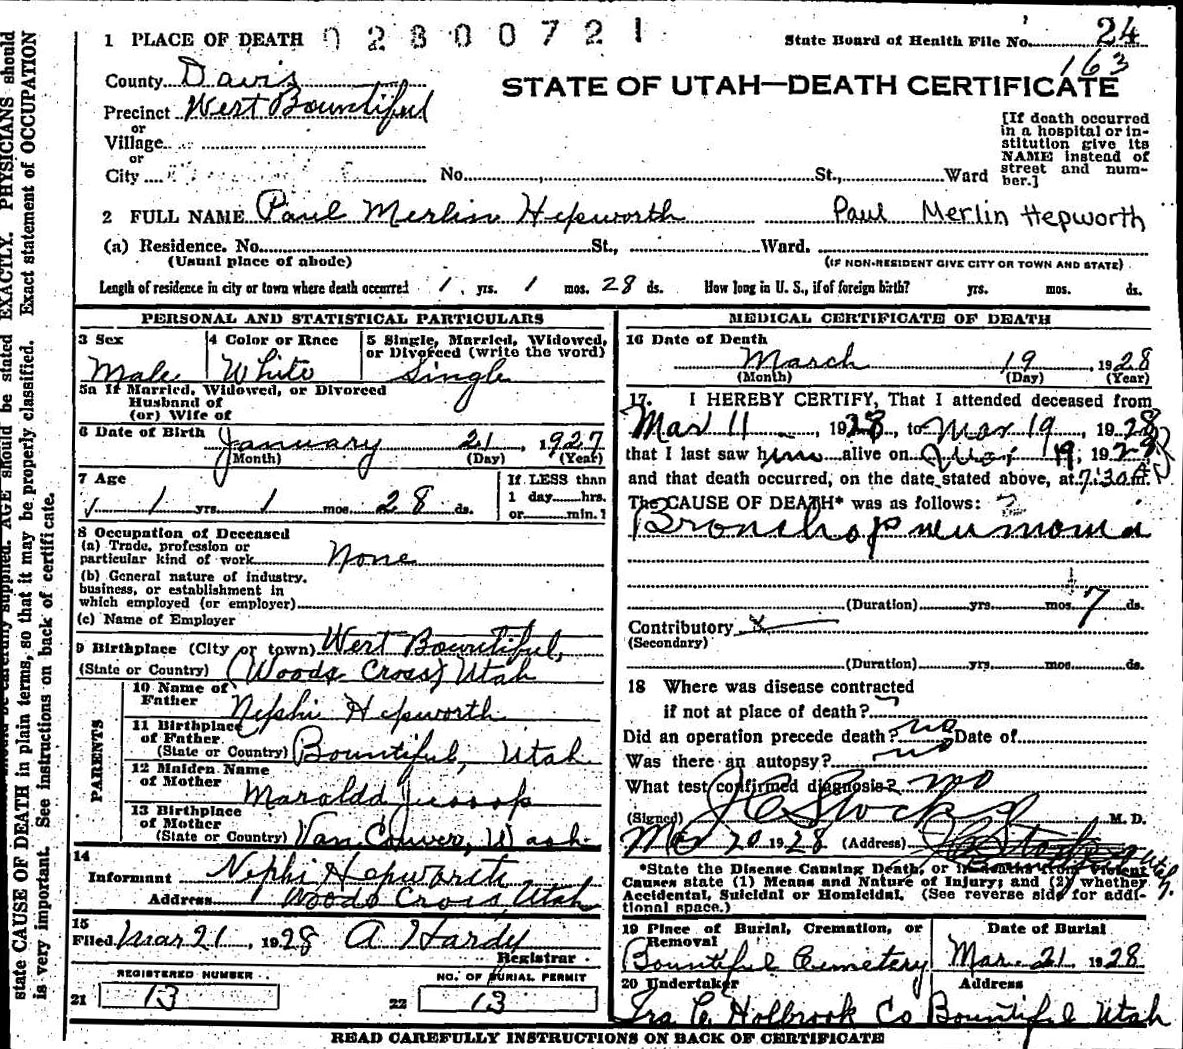 1 PLACE OF DEATH 02800721
State Board of Health File No. 24
163
County Davis
STATE OF UTAH—DEATH CERTIFICATE
Precinct West Bountiful
or
Village
or
City No. St., Ward
[If death occurred
in a hospital or in-
stitution give its
NAME instead of
street and num-
ber.]
2 FULL NAME Paul Merlin Hepworth Paul Merlin Hepworth
(a) Residence. No. St., Ward.
(Usual place of abode) (IF NON-RESIDENT GIVE CITY OR TOWN AND STATE)
Length of residence in city or town where death occurred 1 yrs. 1 mos. 28 ds. How long in U. S., if of foreign birth? yrs. mos. ds.
PERSONAL AND STATISTICAL PARTICULARS
3 Sex 4 Color or Race 5 Single, Married, Widowed,
or Divorced (write the word)
Male White Single
5a If Married, Widowed, or Divorced
Husband of
(or) Wife of
6 Date of Birth January 21, 1927
(Month) (Day) (Year)
7 Age If LESS than
1 day hrs.
or min.?
1 yrs. 1 mos. 28 ds.
8 Occupation of Deceased
(a) Trade, profession or
particular kind of work None
(b) General nature of industry,
business, or establishment in
which employed (or employer)
(c) Name of Employer
9 Birthplace (City or town) West Bountiful,
(State or Country) (Woods Cross) Utah
PARENTS
10 Name of
Father Nephi Hepworth
11 Birthplace
of Father
(State or Country) Bountiful, Utah
12 Maiden Name
of Mother
13 Birthplace
of Mother
(State or Country) Van Couver, Wash.
14
Informant Nephi Hepworth
Address Woods Cross, Utah
15
Filed Mar 21, 1928 A Hardy
Registrar
REGISTERED NUMBER NO. OF BURIAL PERMIT
21 13 22 13
MEDICAL CERTIFICATE OF DEATH
16 Date of Death
March 19, 1928
(Month) (Day) (Year)
17. I HEREBY CERTIFY, That I attended deceased from
Mar 11, 1928, to Mar 19, 1928
that I last saw him alive on Mar 19, 1928
and that death occurred, on the date stated above, at 7:30 A m.
The CAUSE OF DEATH* was as follows:
Bronchopneumonia
(Duration) yrs. mos. 7 ds.
Contributory x
(Secondary)
(Duration) yrs. mos. ds.
18 Where was disease contracted
if not at place of death?
Did an operation precede death? no Date of
Was there an autopsy? no
What test confirmed diagnosis? no
(Signed) J C Stocks M. D.
Mar 20 1928 (Address) Bountiful Utah
*State the Disease Causing Death, or in deaths from Violent
Causes state (1) Means and Nature of Injury; and (2) whether
Accidental, Suicidal or Homicidal. (See reverse side for addi-
tional space.)
19 Place of Burial, Cremation, or
Removal Date of Burial
Bountiful Cemetery Mar. 21 1928
20 Undertaker Address
Ira C. Holbrook Co Bountiful Utah
READ CAREFULLY INSTRUCTIONS ON BACK OF CERTIFICATE
AGE should be stated EXACTLY. PHYSICIANS should
state CAUSE OF DEATH in plain terms, so that it may be properly classified. Exact statement of OCCUPATION
is very important. See instructions on back of certificate.